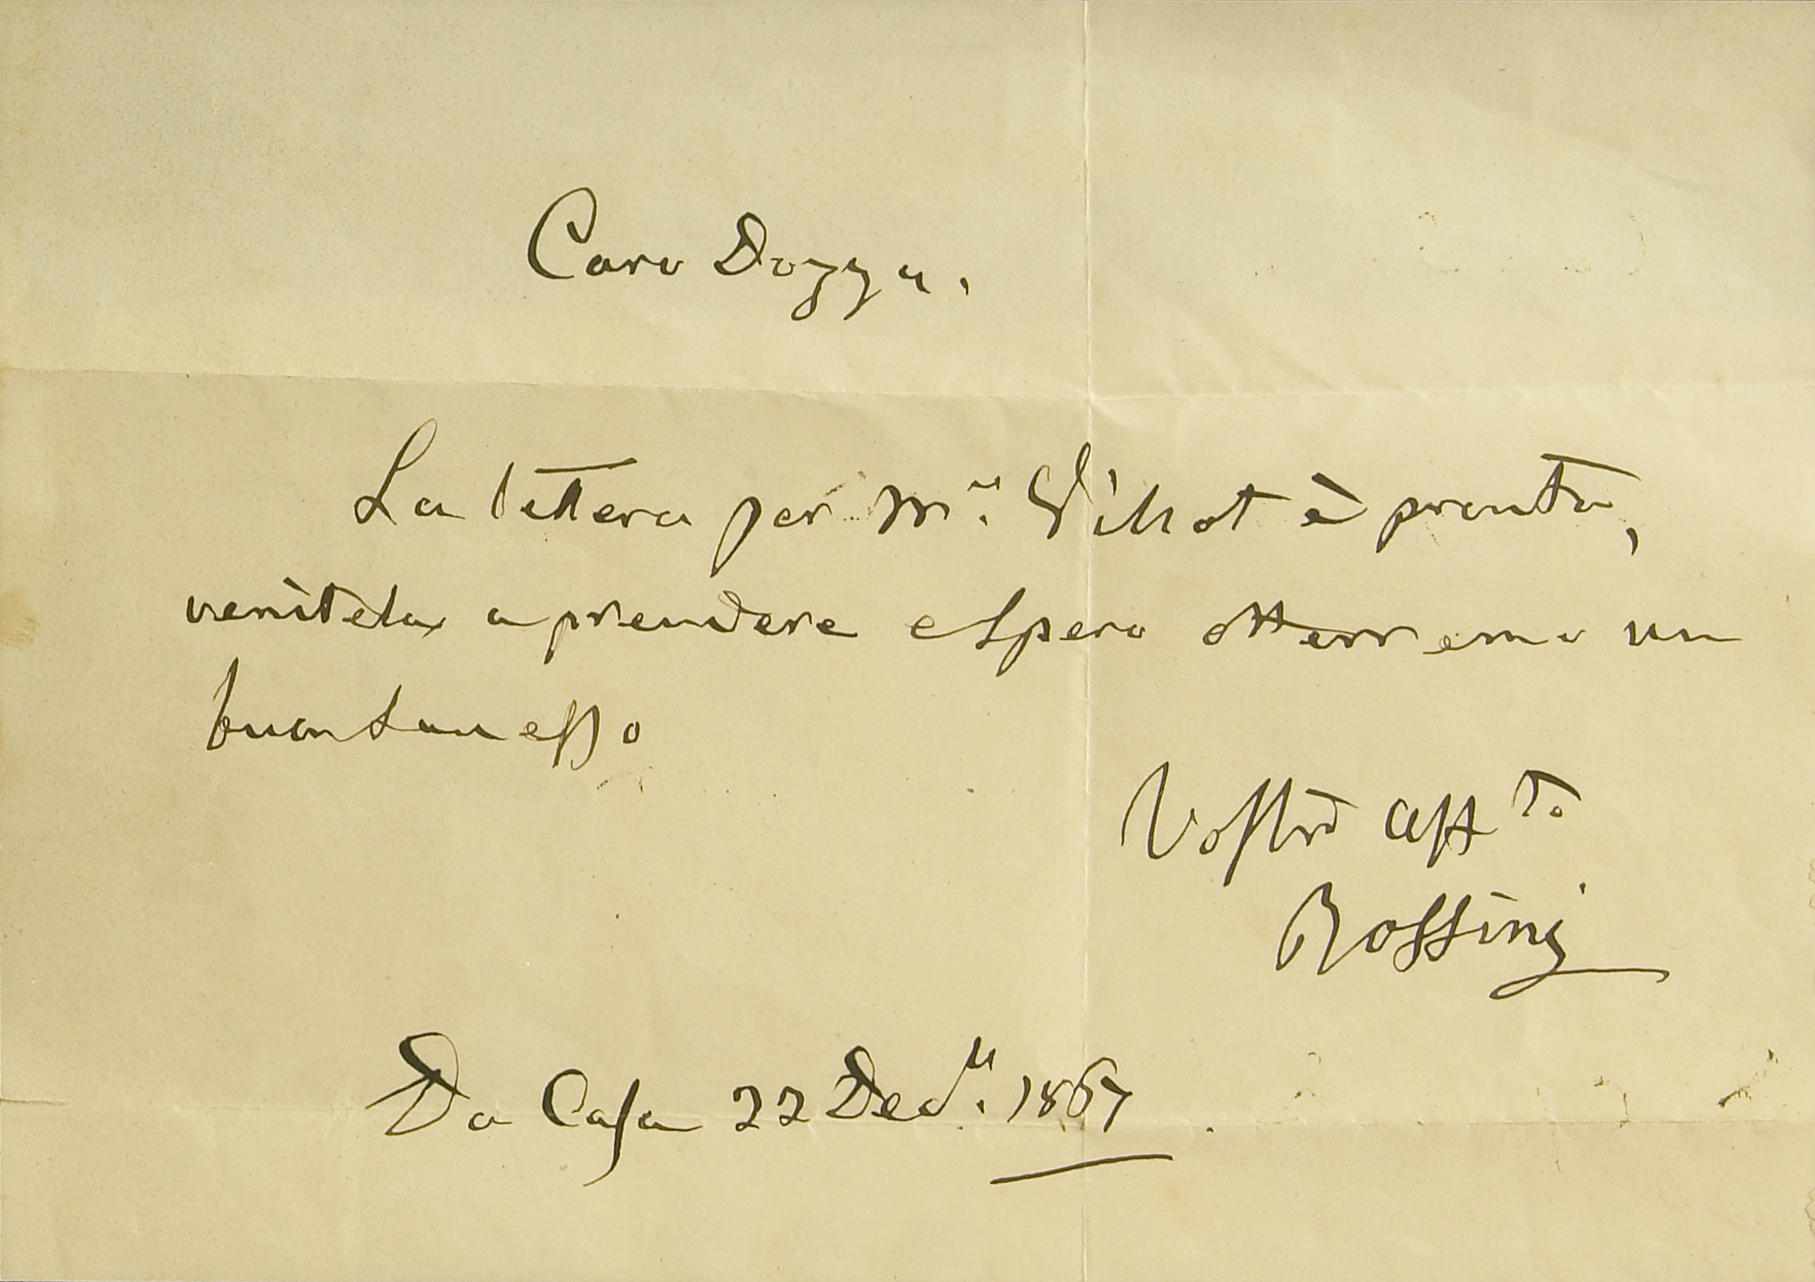 Caro Dozza.
La lettera per Mr. Vihot è pronta,
venitela a prendere e spero otterremo un
buon successo
Vostro affto
Rossini
Da Casa 22 Decr. 1867